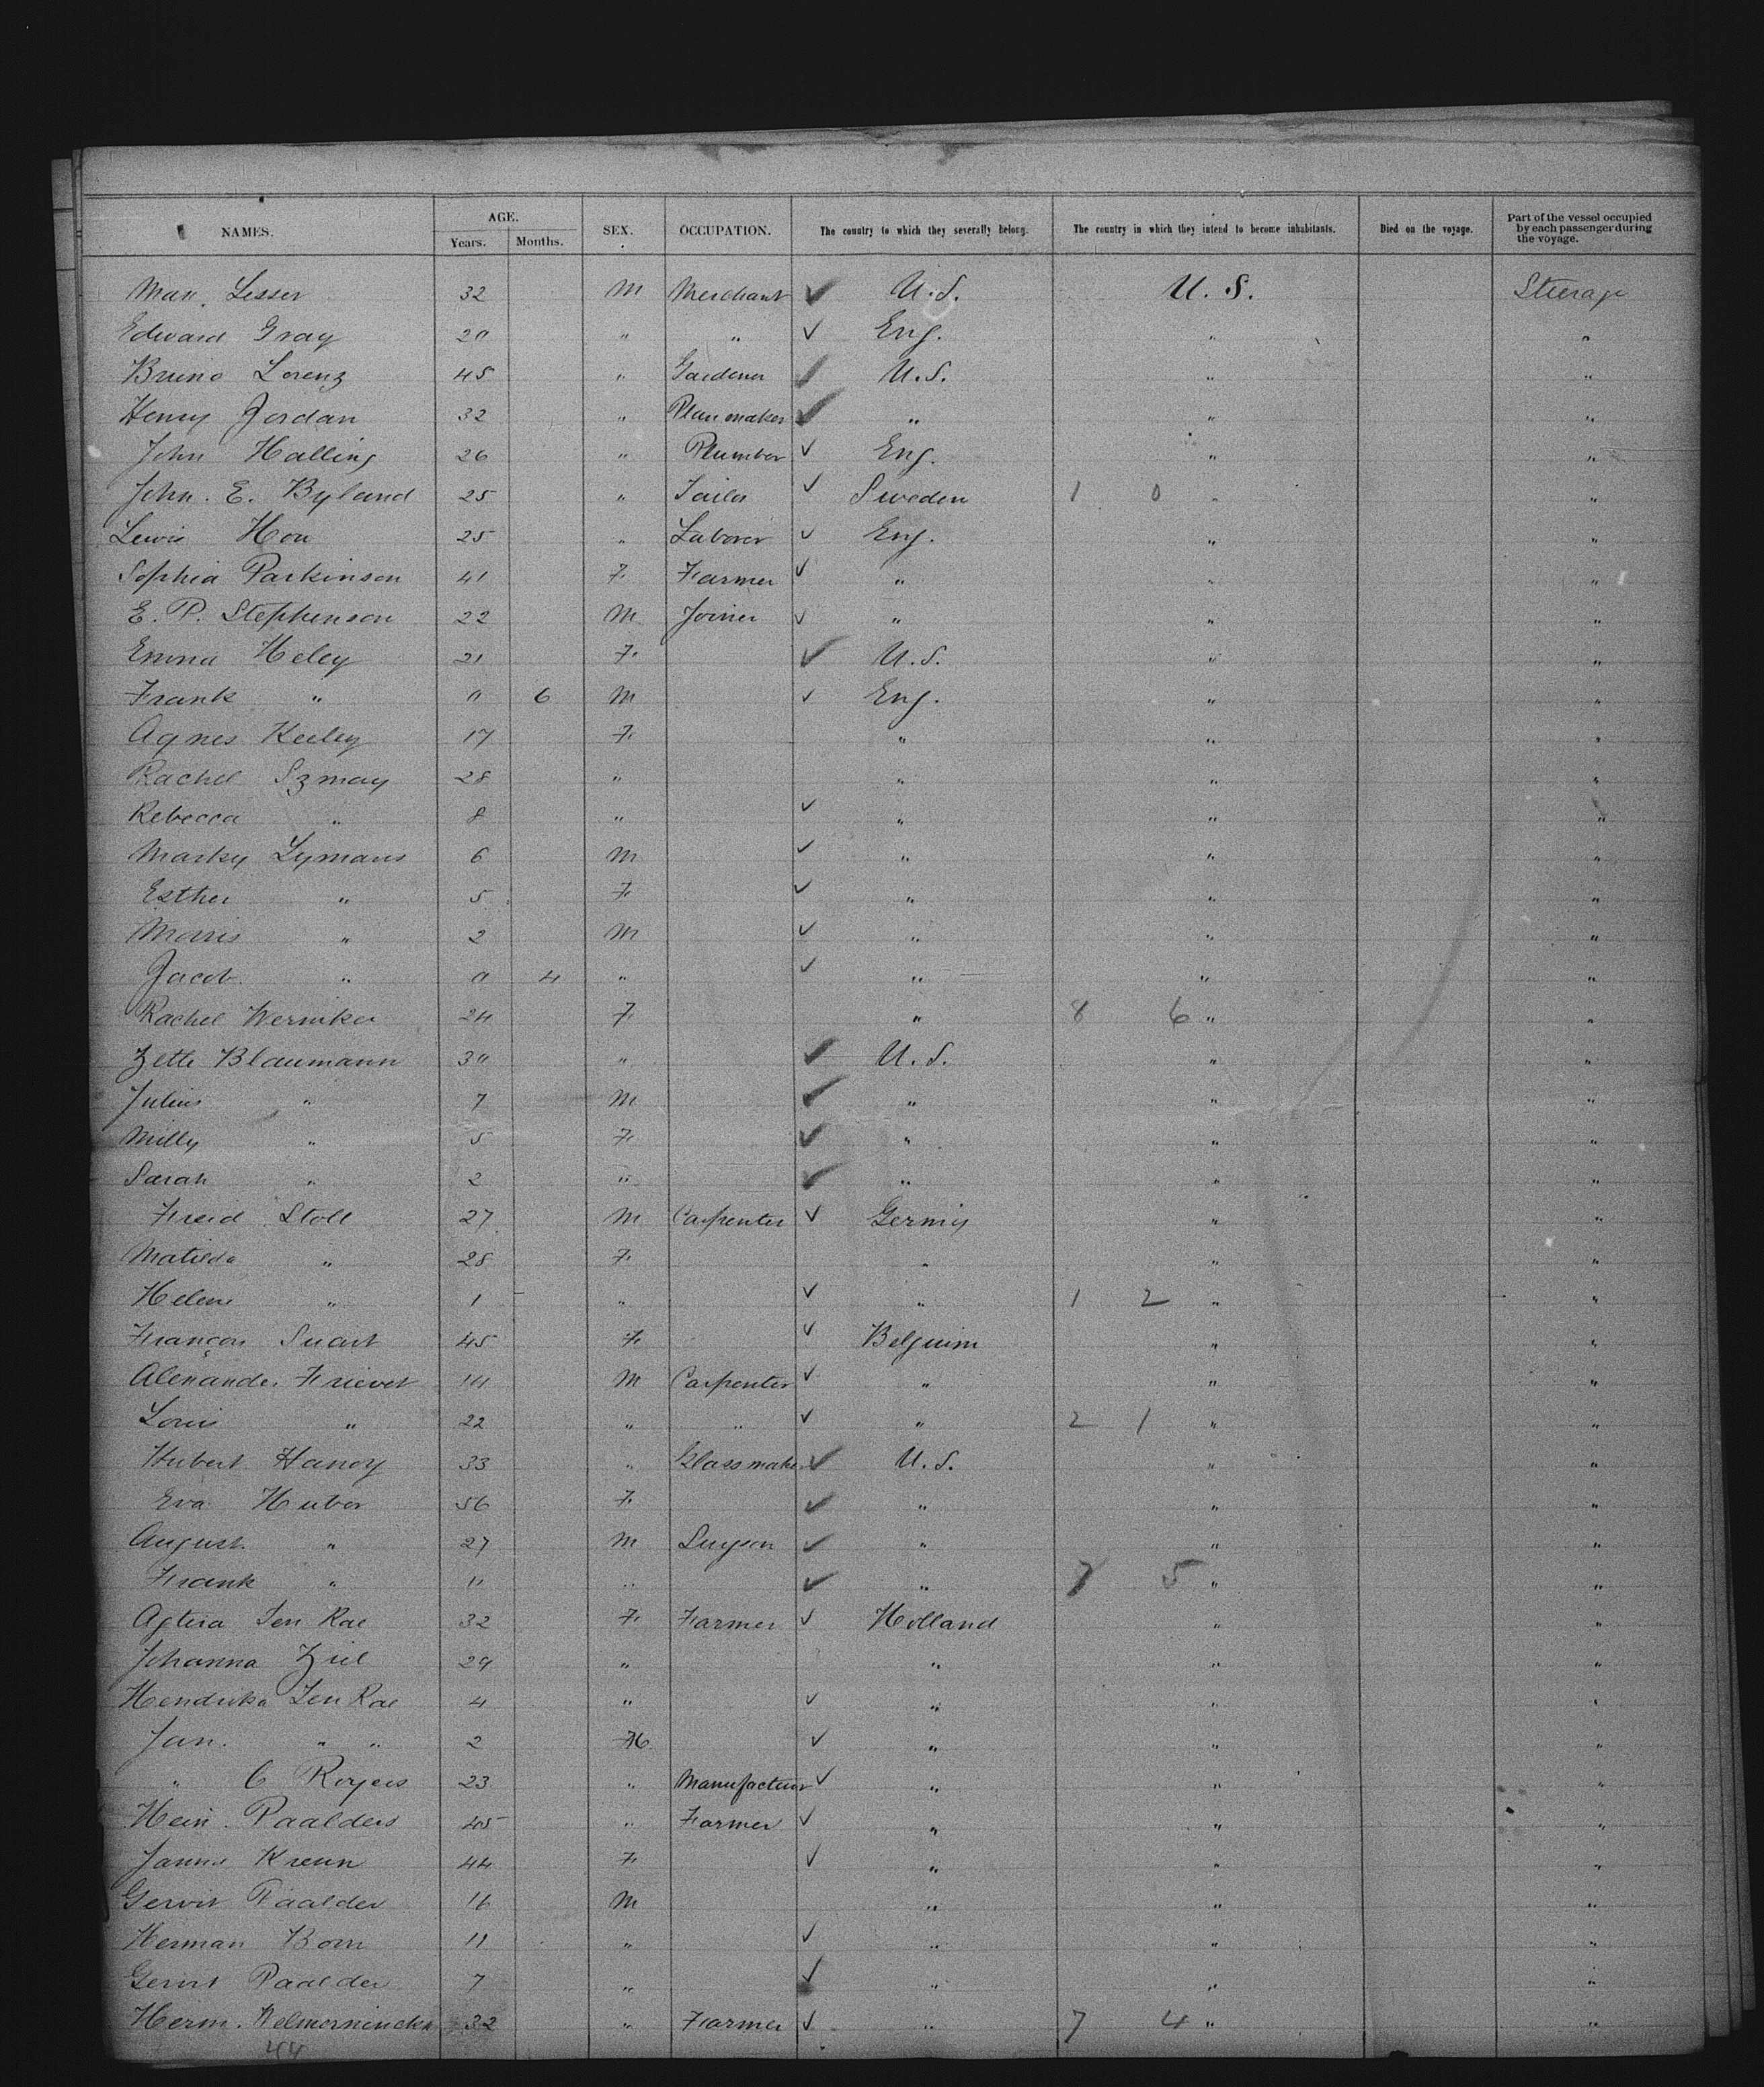 NAMES. AGE. Years. Months. SEX. OCCUPATION. The country to which they severally belong. The country in which they intend to become inhabitants. Died on the voyage. Part of the vessel occupied by each passenger during the voyage.
Max Lesser 32 M Merchant U.S. U.S. Steerage
Edward Gray 20 " " Eng. " "
Bruno Lorenz 45 " Gardener U.S. " "
Henry Jordan 32 " " " "
John Halling 26 " Plumber Eng. " "
John. E. Byland 25 " Tailor Sweden 1 0 " "
Lewis Hou 25 " Laborer Eng. " "
Sophia Parkinson 41 F. Farmer " " "
E. P. Stephenson 22 M Joiner " " "
Emma Heley 21 F. U.S. " "
Frank " 0 6 M Eng. " "
Agnes Keeley 17 F. " " "
Rachel Szmay 28 " " " "
Rebecca " 8 " " " "
Marky Lymans 6 M " " "
Esther " 5 F. " " "
Morris " 2 M " " "
Jacob " 0 4 " " " "
Rachel Werniker 24 F. " 8 6 " "
Zette Blaumann 30 " U.S. " "
Julius " 7 M " " "
Milly " 5 F. " " "
Sarah " 2 " " " "
Freid Stoll 27 M Carpenter Germy " "
Matilda " 28 F. " " "
Helene " 1 " " 1 2 " "
Françon Suart 45 F. Belguim " "
Alexander Frievet 14 M Carpenter " " "
Louis " 22 " " " 2 1 " "
Hubert Hanoy 33 " Glassmaker U.S. " "
Eva Huber 56 F. " " "
August " 27 M " " "
Frank " 11 " " 7 5 " "
Agtera Ten Rae 32 F. Farmer Holland " "
Johanna Ziel 29 " " " "
Hendrika Ten Rae 4 " " " "
Jan. " " 2 M " " "
" C Royers 23 " Manufacteur " " "
Hein. Paalders 45 " Farmer " " "
Janna Kreun 44 F. " " "
Gerrit Paalder 16 M " " "
Herman Bom 11 " " " "
Gerrit Paalder 7 " " " "
Herm. 32 " Farmer " 7 4 " "
44